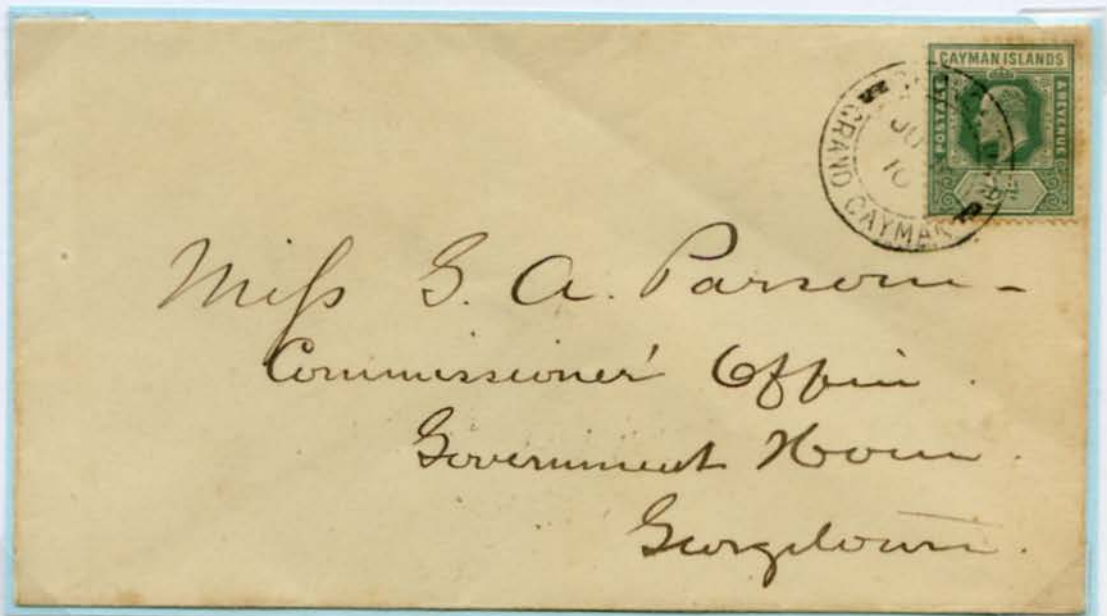 CAYMAN ISLANDS
POSTAGE
& REVENUE
JU
10
GRAND CAYMAN
Miss G. A. Parsons
Commissioner' Office
Government House
Georgetown.